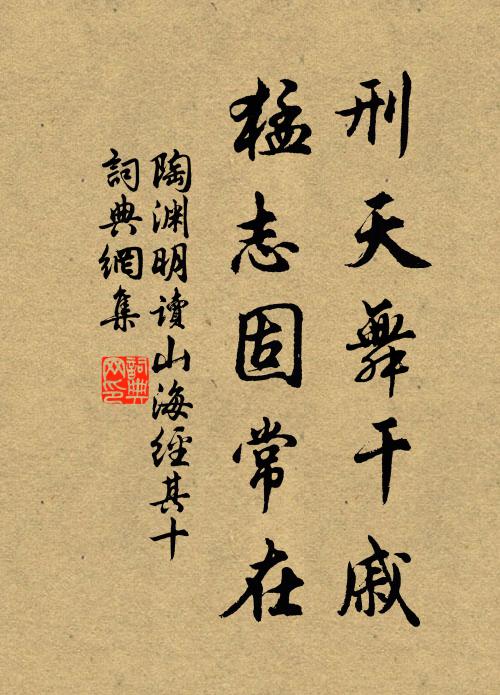 刑天舞干戚
猛志固常在
陶渊明讀山海經其十
詞典網集
詞典网印